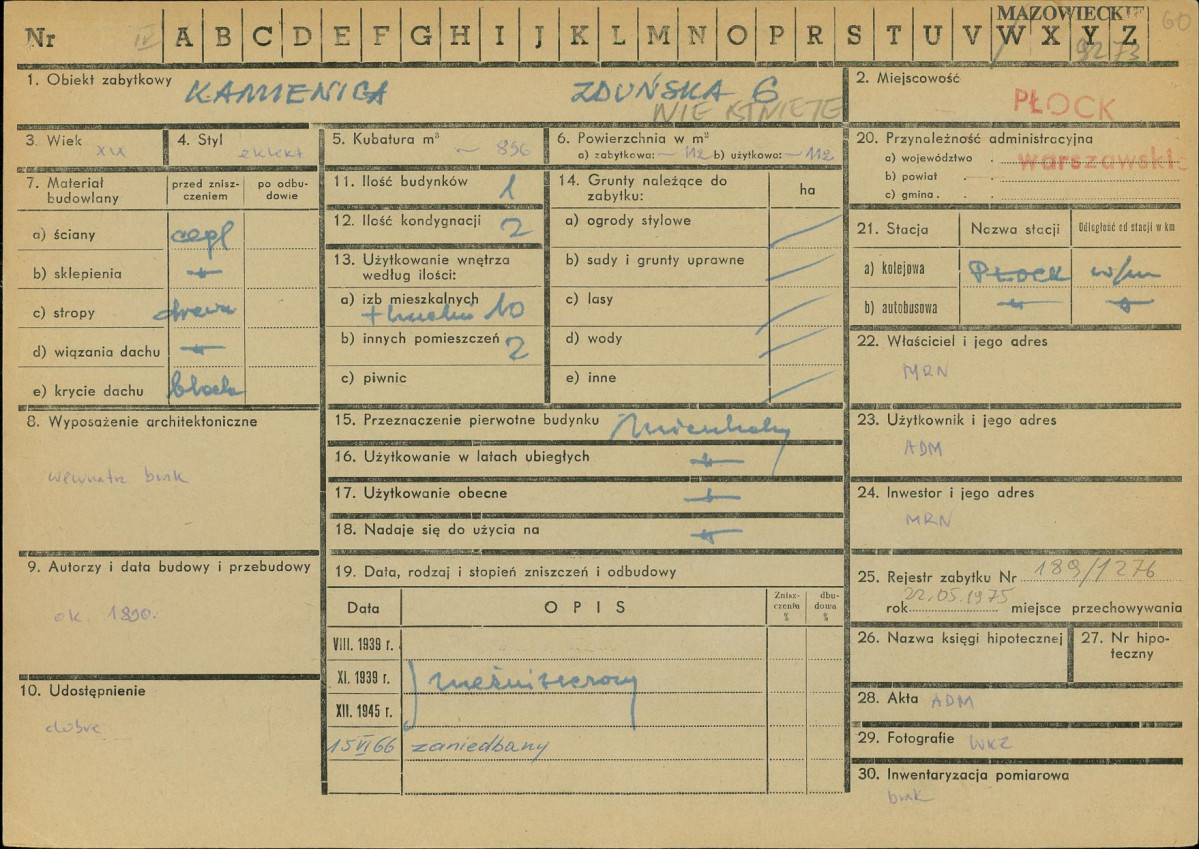 MAZOWIECKIE 60
Nr IV A B C D E F G H I J K L M N O P R S T U V W X Y Z
9273
1. Obiekt zabytkowy KAMIENICA ZDUŃSKA 6
NIE ISTNIEJE
2. Miejscowość
PŁOCK
3. Wiek
XIX
4. Styl
eklekt
5. Kubatura m³
~ 896
6. Powierzchnia w m²
a) zabytkowa: ~ 112 b) użytkowa: ~ 112
7. Materiał budowlany
przed znisz-
czeniem
po odbu-
dowie
a) ściany cegl
b) sklepienia
c) stropy drewn
d) wiązania dachu
e) krycie dachu blach
8. Wyposażenie architektoniczne
wewnątrz brak
9. Autorzy i data budowy i przebudowy
ok. 1890.
10. Udostępnienie
dobre
11. Ilość budynków 1
12. Ilość kondygnacji 2
13. Użytkowanie wnętrza
według ilości:
a) izb mieszkalnych
+ kuchni 10
b) innych pomieszczeń 2
c) piwnic
14. Grunty należące do
zabytku:
ha
a) ogrody stylowe
b) sady i grunty uprawne
c) lasy
d) wody
e) inne
15. Przeznaczenie pierwotne budynku mieszkalny
16. Użytkowanie w latach ubiegłych
17. Użytkowanie obecne
18. Nadaje się do użycia na
19. Data, rodzaj i stopień zniszczeń i odbudowy
Data
OPIS
Znisz-
czenia
%
dbu-
dowa
%
VIII. 1939 r.
XI. 1939 r.
nieźniszczony
XII. 1945 r.
15 VI 66 zaniedbany
20. Przynależność administracyjna
a) województwo . warszawskie
b) powiat .
c) gmina .
21. Stacja
Nazwa stacji
Odległość od stacji w km
a) kolejowa PŁOCK w/m
b) autobusowa
22. Właściciel i jego adres
MRN
23. Użytkownik i jego adres
ADM
24. Inwestor i jego adres
MRN
25. Rejestr zabytku Nr 189/1276
rok 22.05.1975 miejsce przechowywania
26. Nazwa księgi hipotecznej
27. Nr hipo-
teczny
28. Akta ADM
29. Fotografie WKZ
30. Inwentaryzacja pomiarowa
brak